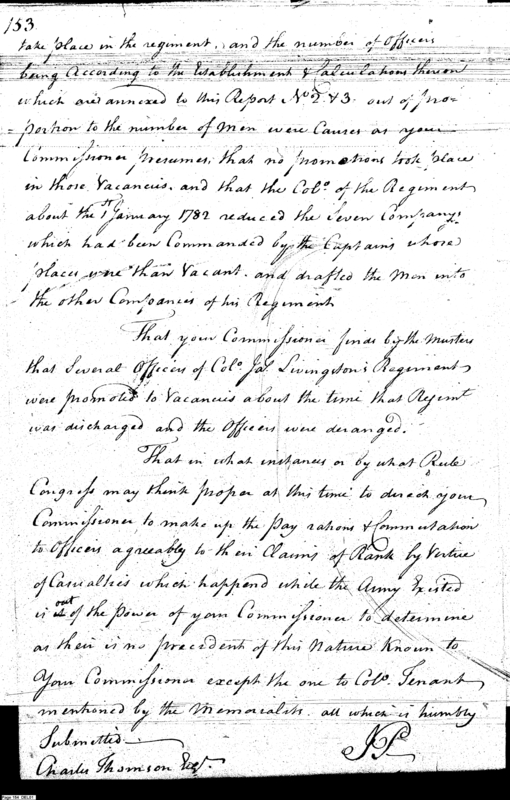 153
take place in the regiment, and the number of Officers
being According to the Establishment & Calculations thereon
which are annexed to this Report No. 2 & 3. out of pro=
portion to the number of Men were Causes as your
Commissioner presumes, that no promotions took place
in those Vacancies, and that the Colo. of the Regiment
about the 1st January 1782 reduced the Seven Companys
which had been Commanded by the Captains whose
places were than Vacant, and drafted the Men into
the other Companies of his Regiment
That your Commissioner finds by the Musters
that Several Officers of Colo. Jas. Livingston's Regiment
were promoted to Vacancies about the time that Regimt
was discharged and the Officers were deranged.
That in what instances or by what Rule
Congress may think proper at this time to direct your
Commissioner to make up the pay rations & Commutation
to Officers agreeably to their Claims of Rank by Vertue
of Casualties which happend while the Army Existed
is out of the power of your Commissioner to determine
as their is no precedent of this Nature Known to
Your Commissioner except the one to Colo. Tenant
mentioned by the Memorialists all which is humbly
Submitted
JP
Charles Thomson Esqr.
Page 154